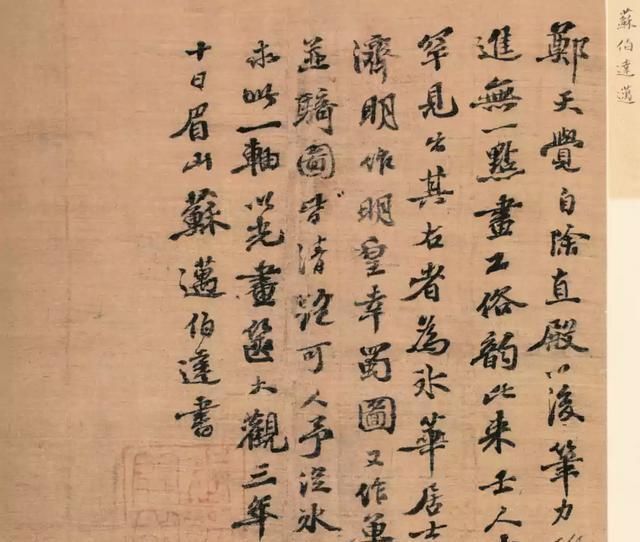 蘇伯達邁
鄭天覺自除直殿以後筆力
進無一點畫工俗韵此来士人
罕見出其右者為水華居士
濟明作明皇幸蜀圖又作單
並驕圖皆清𡶶可人予從水
求此一軸以光畫篋大觀三年
十日眉山蘇邁伯達書